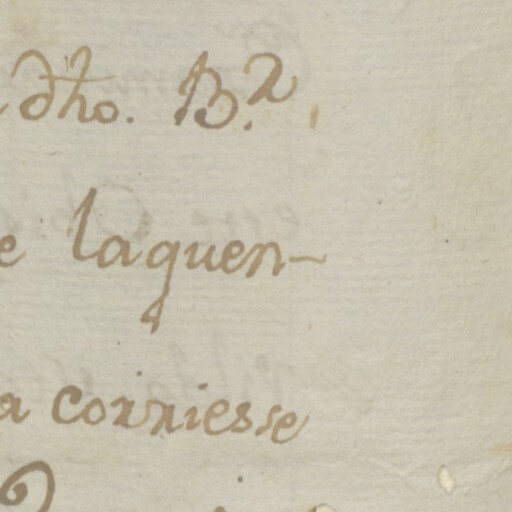 dho. B.r
e laquen-
a corriesse